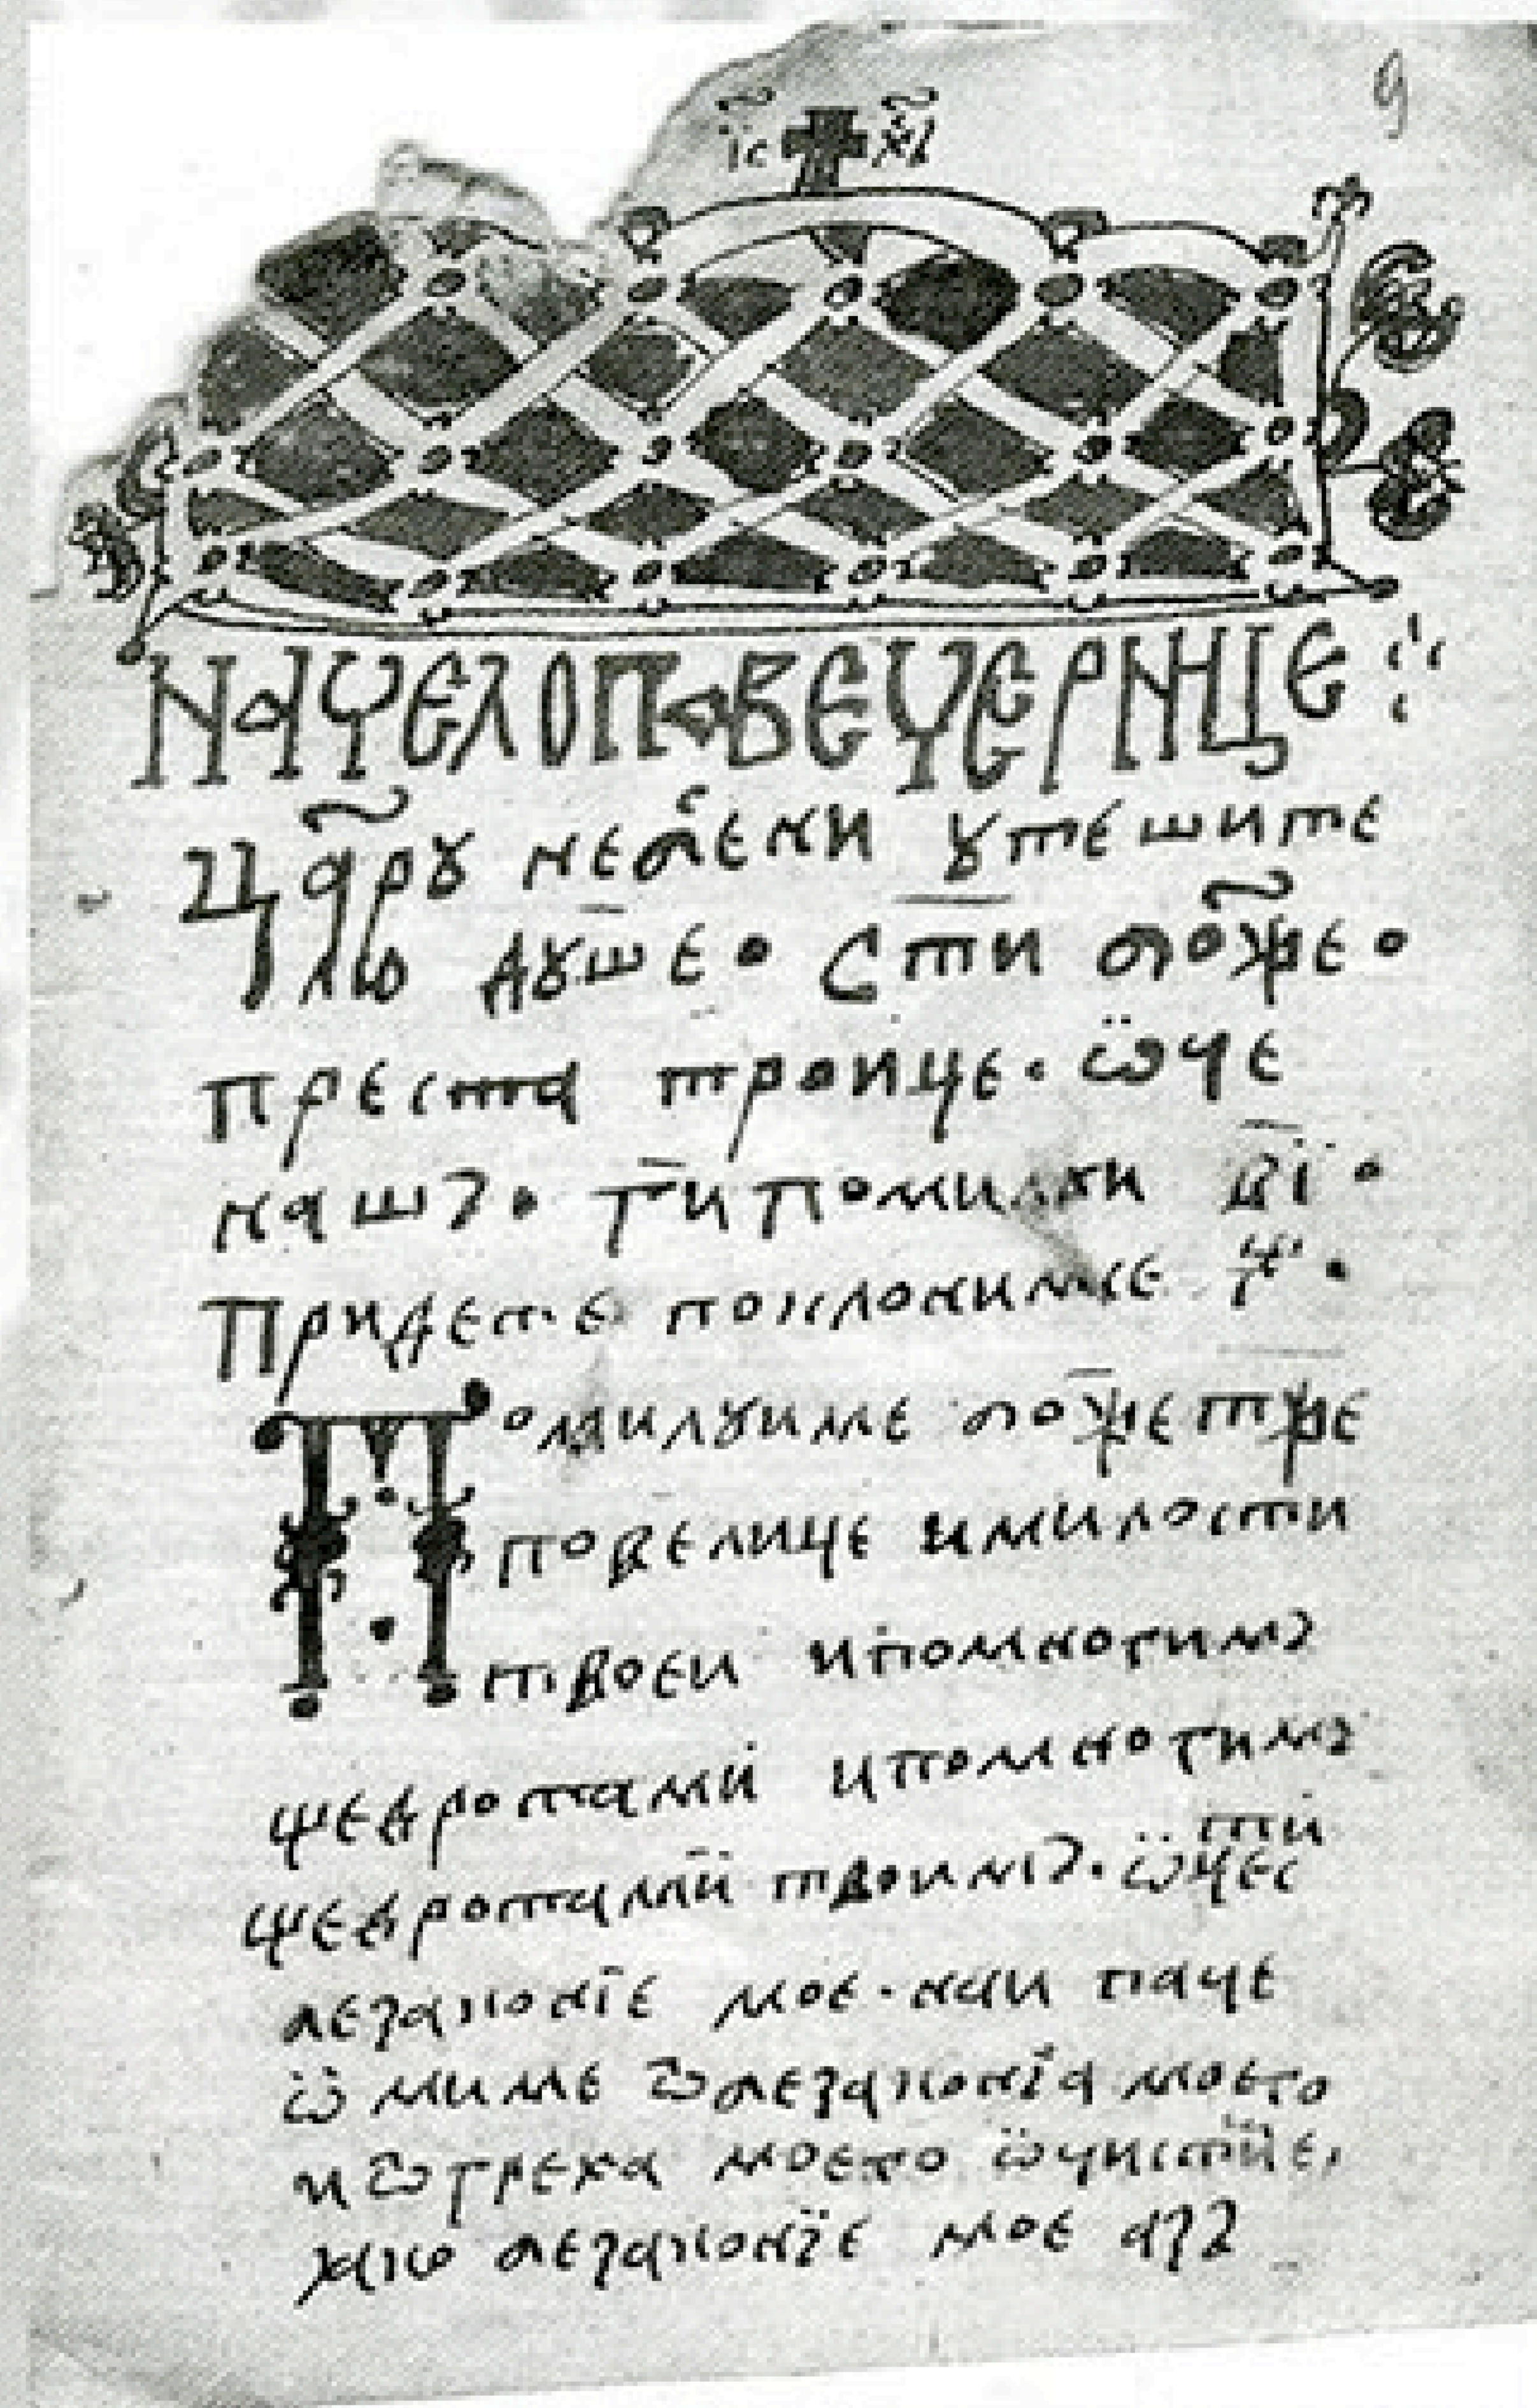 9
їс хс
НАЧЕЛО ПАВЕЧЕРНИЦЕ
Цр҃ꙋ небⷭ҇ени ꙋтешите
лю дꙋше · Ст҃и бож҃е ·
преста троице · ѿче
нашъ · Г҃и помилꙋи в҃і ·
Придете поклонимсе
Помилꙋи ме бож҃е
по велице и милости
твоеи и по многимъ
щедротами и по многимъ
щедротами твоимъ · ѿчести
безаконїе мое · наи паче
ѡ мие ме ѿ безаконїа моего
и ѿ греха моего ѡчисти ме,
ꙗко безаконїе мое азъ